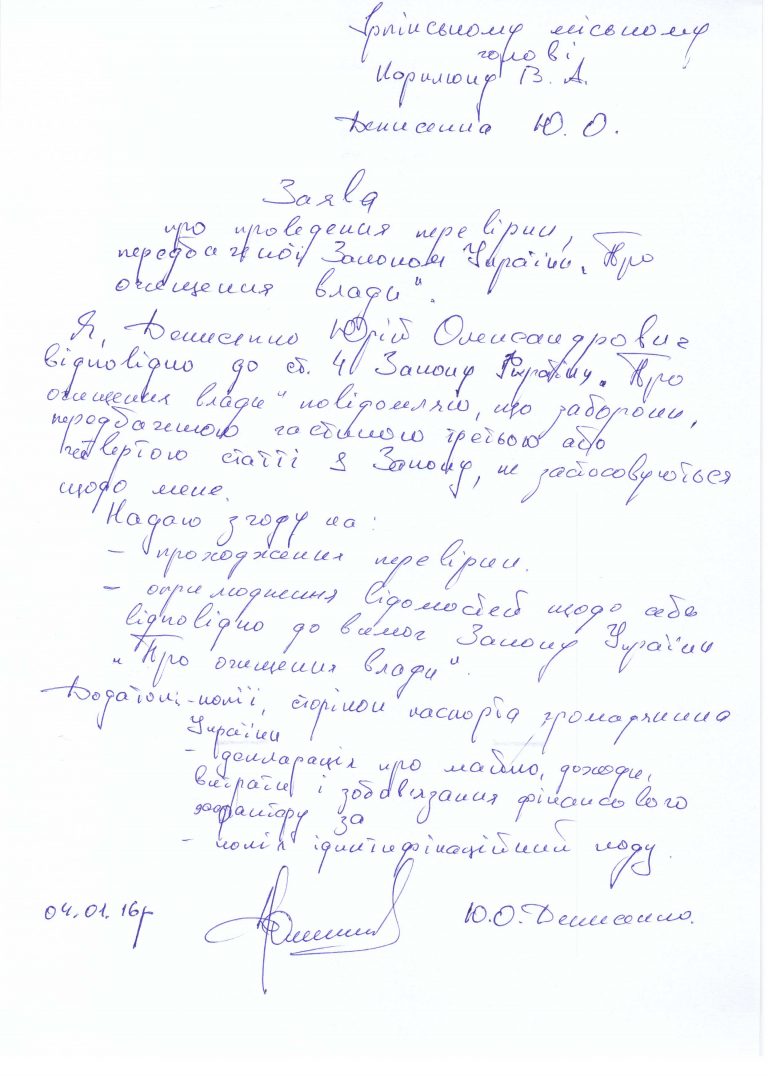 Ірпінському міському
голові
Карплюку В. А.
Денисенка Ю. О.
Заява
про проведення перевірки,
передбаченої Законом України „Про
очищення влади".
Я, Денисенко Юрій Олександрович
відповідно до ст. 4 Закону України „Про
очищення влади" повідомляю, що заборони,
передбаченою частиною третьою або
четвертою статті 1 Закону, не застосовуються
щодо мене.
Надаю згоду на:
– проходження перевірки.
– оприлюднення відомостей щодо себе
відповідно до вимог Закону України
„Про очищення влади".
Додатки: - копії, сторінок паспорта громадянина
України
- декларація про майно, доходи,
витрати і зобов'язання фінансового
характеру за
- копія ідентифікаційний коду.
04.01.16р
Ю.О.Денисенко.